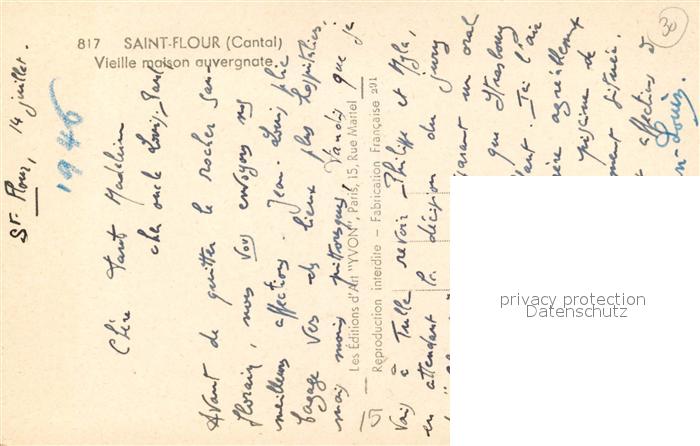 817 SAINT-FLOUR (Cantal)
Vieille maison auvergnate.
30
St Flour, 14 juillet.
1946
Chère Tante Madeleine
cher oncle Louis-Paul
Avant de quitter le rocher San-
florain, nous vous envoyons nos
meilleures affections. Jean-Louis plie
bagage vers des lieux plus hospitaliers:
mais moins pittoresques! Tandis que je
vais à Tulle revoir Philippe et
en attendant la décision du jury
avant un oral
que Strasbourg
Ici l'air
agréablement
piscine de
située.
affections
n-Louis.
Les Éditions d'Art "YVON", Paris, 15, Rue Martel
Reproduction interdite — Fabrication Française 291
privacy protection
Datenschutz